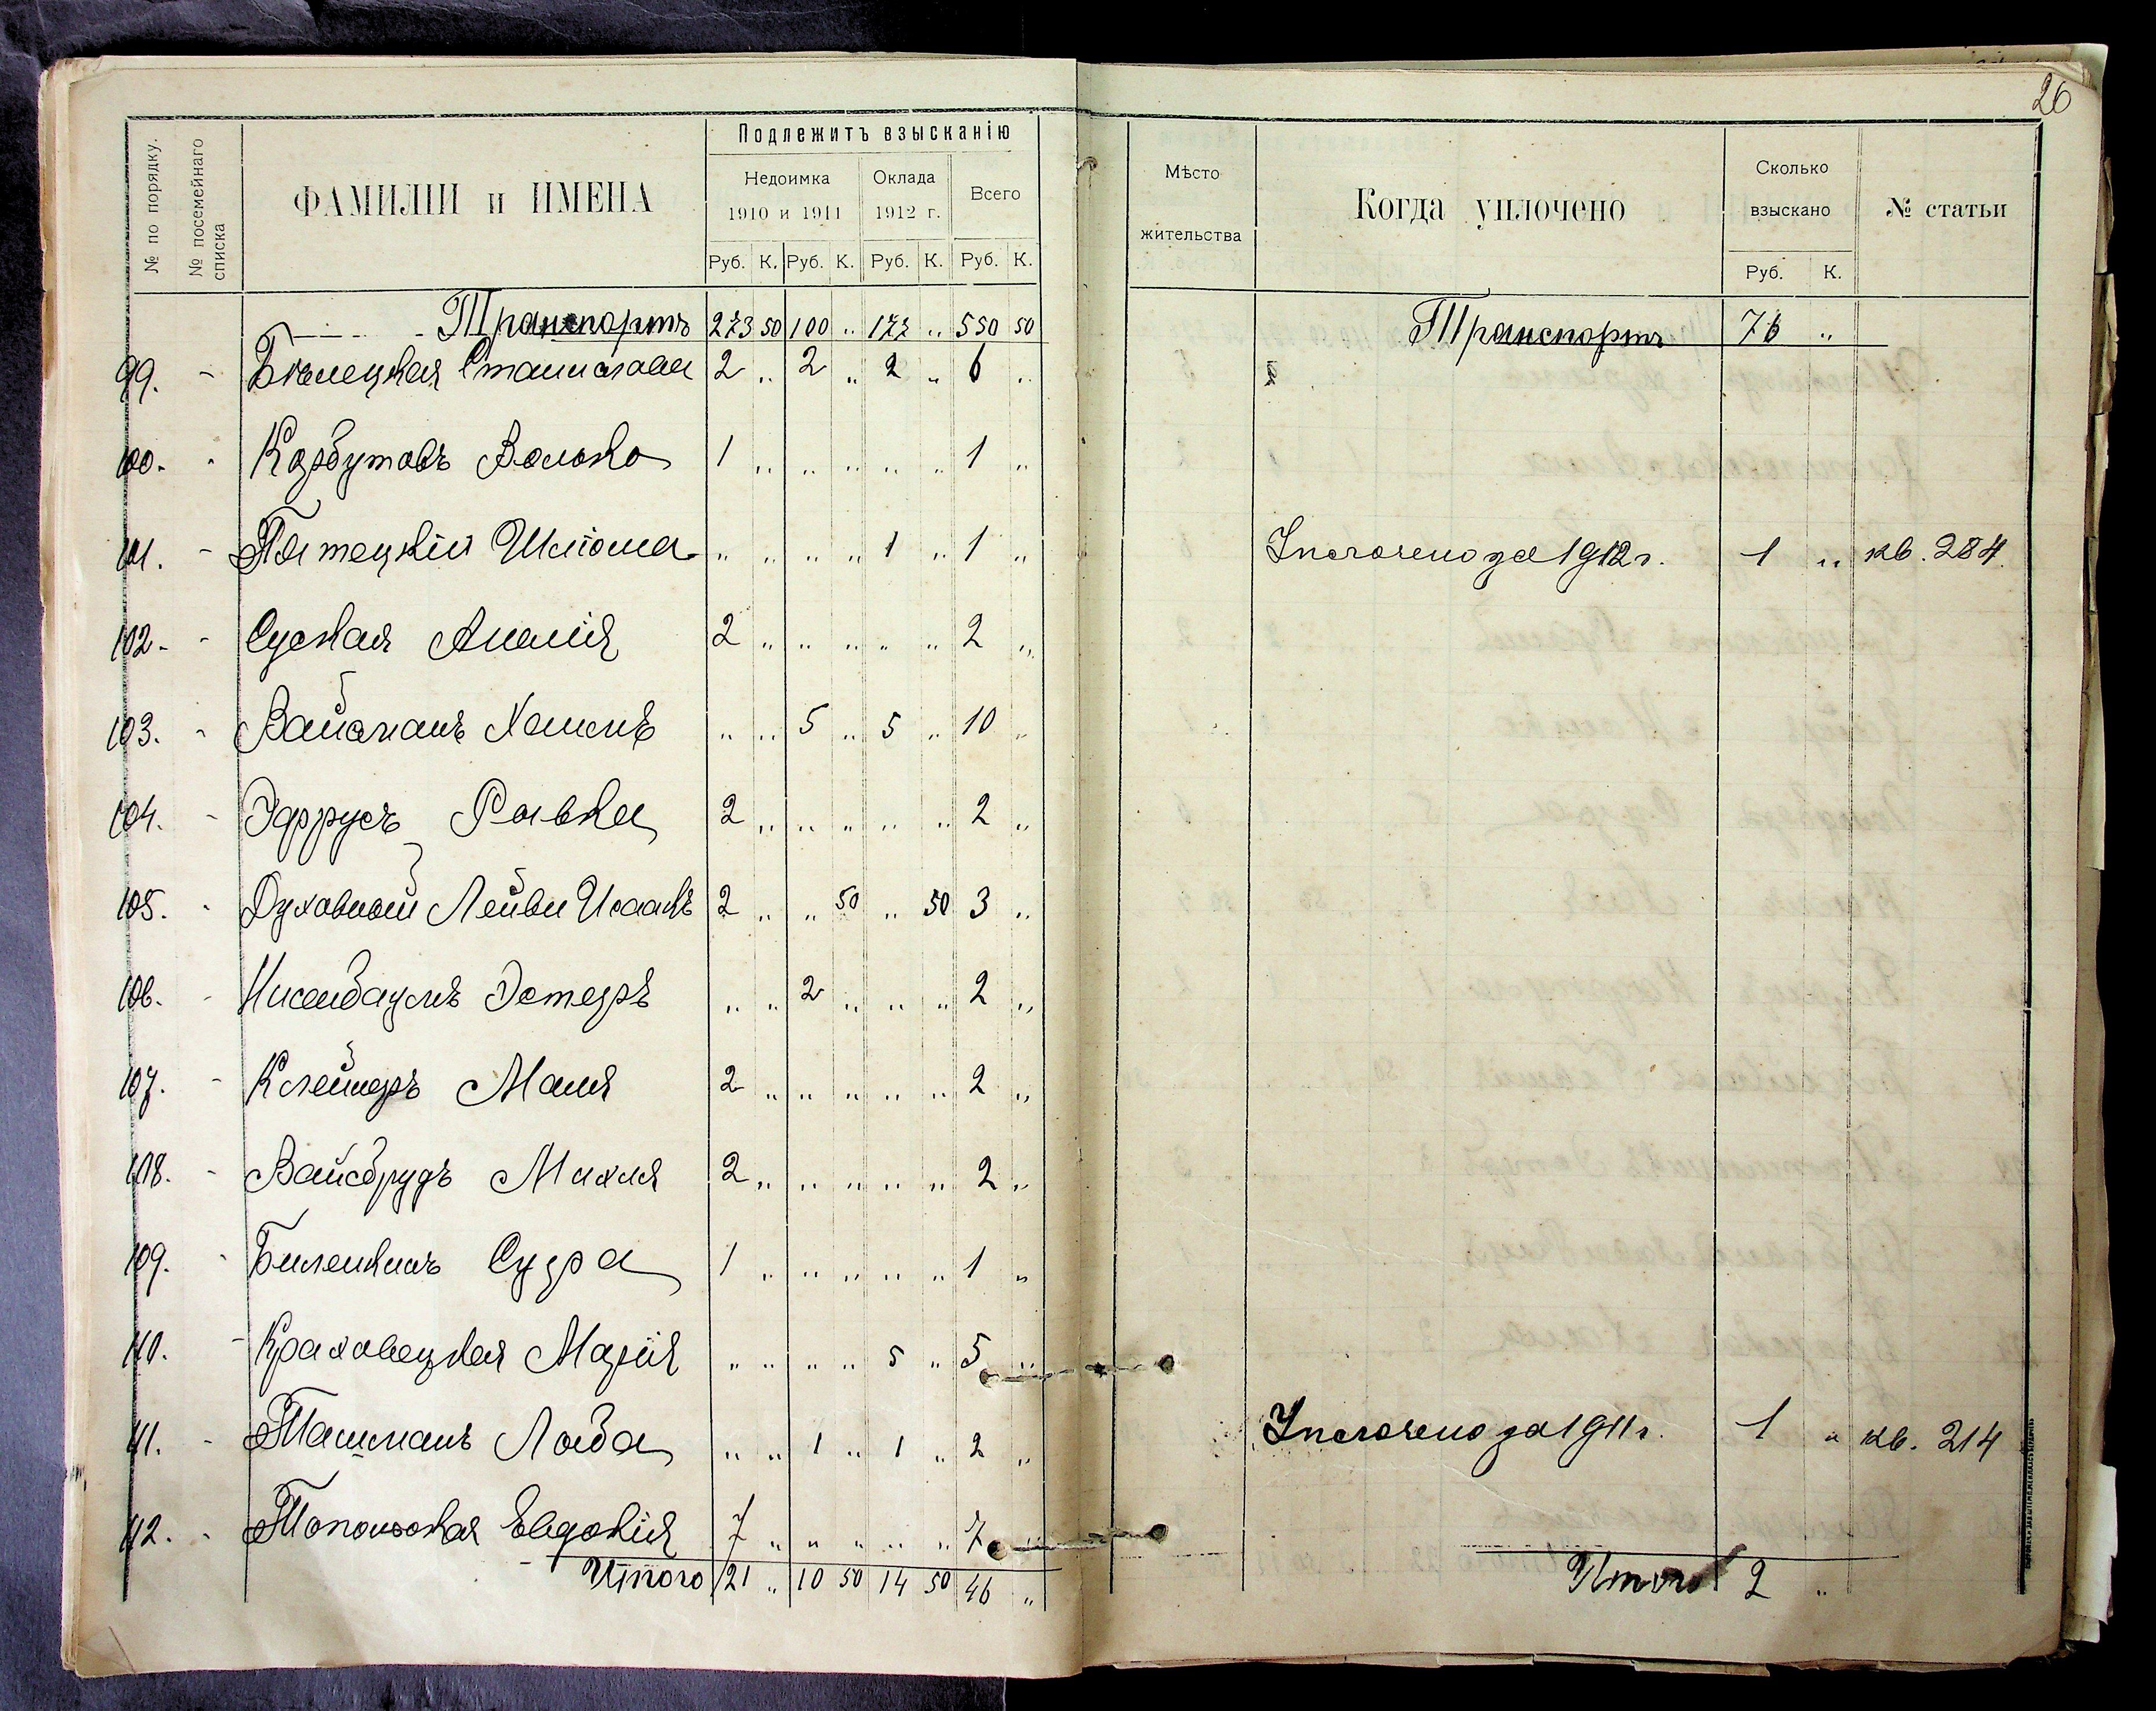 26
№ по порядку.
№ посемейнаго списка
ФАМИЛІИ и ИМЕНА
Подлежитъ взысканію
Недоимка 1910 и 1911
Оклада 1912 г.
Всего
Руб. К. Руб. К. Руб. К. Руб. К.
Мѣсто жительства
Когда уплочено
Сколько взыскано
Руб. К.
№ статьи
Транспортъ 273 50 100 „ 177 „ 550 50 Транспортъ 76 „
99. - Бѣлецкая Станислава 2 „ 2 „ 2 „ 6 „
100. - Корбутовъ Волько 1 „ „ „ „ „ 1 „
101. - Пятецкій Шлiома „ „ „ „ 1 „ 1 „ Уплочено за 1912 г. 1 „ кв. 284.
102. - Суская Амалія 2 „ „ „ „ „ 2 „
103. - Вайсманъ Хаимъ „ „ 5 „ 5 „ 10 „
104. - Эфрусъ Ривка 2 „ „ „ „ „ 2 „
105. - Духовный Лейви Исаакъ 2 „ „ 50 „ 50 3 „
106. - Нисенбаумъ Эстеръ „ „ 2 „ „ „ 2 „
107. - Клейнеръ Маня 2 „ „ „ „ „ 2 „
108. - Вайсбрудъ Михля 2 „ „ „ „ „ 2 „
109. - Биленкисъ Сура 1 „ „ „ „ „ 1 „
110. - Краховецкая Марія „ „ „ „ 5 „ 5 „
111. - Ташманъ Люба „ „ 1 „ 1 „ 2 „ Уплочено за 1911 г. 1 „ кв. 214
112. - Топольская Евдокія 7 „ „ „ „ „ 7 „
Итого 21 „ 10 50 14 50 46 „ Итого 2 „